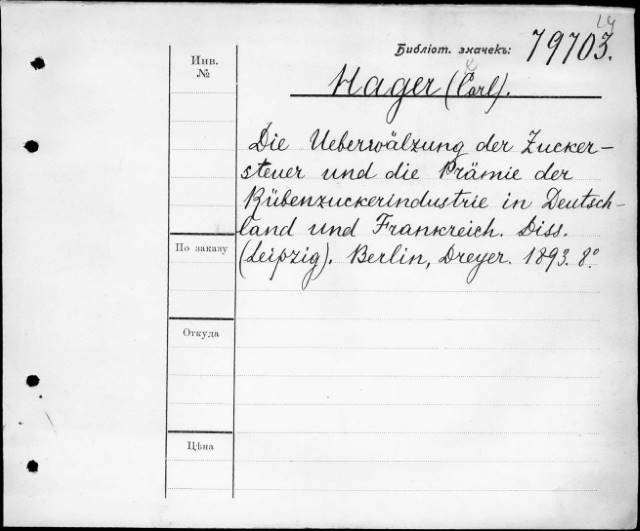 Библіот. значекъ: 79703.
Инв.
№
Hager (Carl).
Die Ueberwälzung der Zucker-
steuer und die Prämie der
Rübenzuckerindustrie in Deutsch-
land und Frankreich. Diss.
(Leipzig). Berlin, Dreyer. 1893. 8.º
По заказу
Откуда
Цѣна